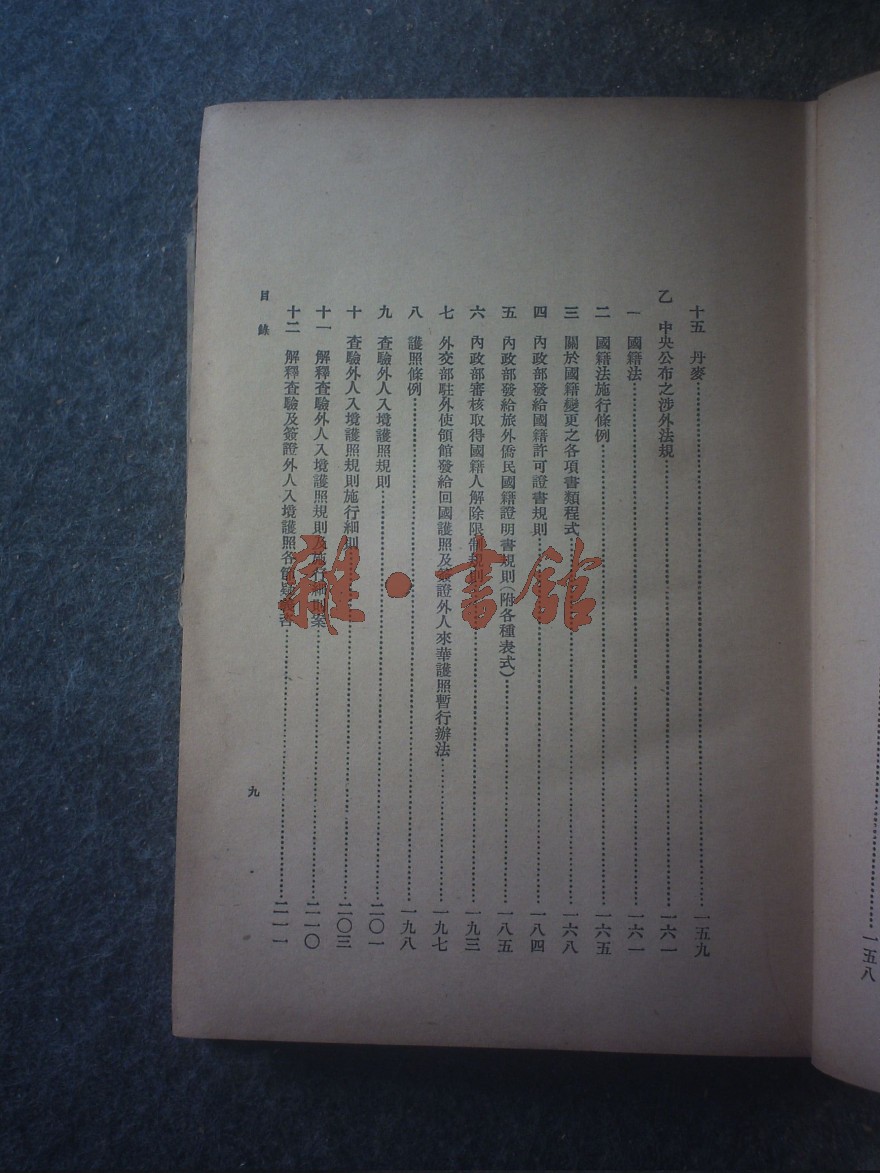 一五八
十五 丹麥 一五九
乙 中央公布之涉外法規 一六一
一 國籍法 一六一
二 國籍法施行條例 一六五
三 關於國籍變更之各項書類程式 一六八
四 內政部發給國籍許可證書規則 一八四
五 內政部發給旅外僑民國籍證明書規則(附各種表式) 一八五
六 內政部審核取得國籍人解除限制規則 一九三
七 外交部駐外使領館發給回國護照及簽證外人來華護照暫行辦法 一九七
八 護照條例 一九八
九 查驗外人入境護照規則 二〇一
十 查驗外人入境護照規則施行細則 二〇三
十一 解釋查驗外人入境護照規則及施行細則案 二一〇
十二 解釋查驗及簽證外人入境護照各節 二一一
目錄
九
雜·書館